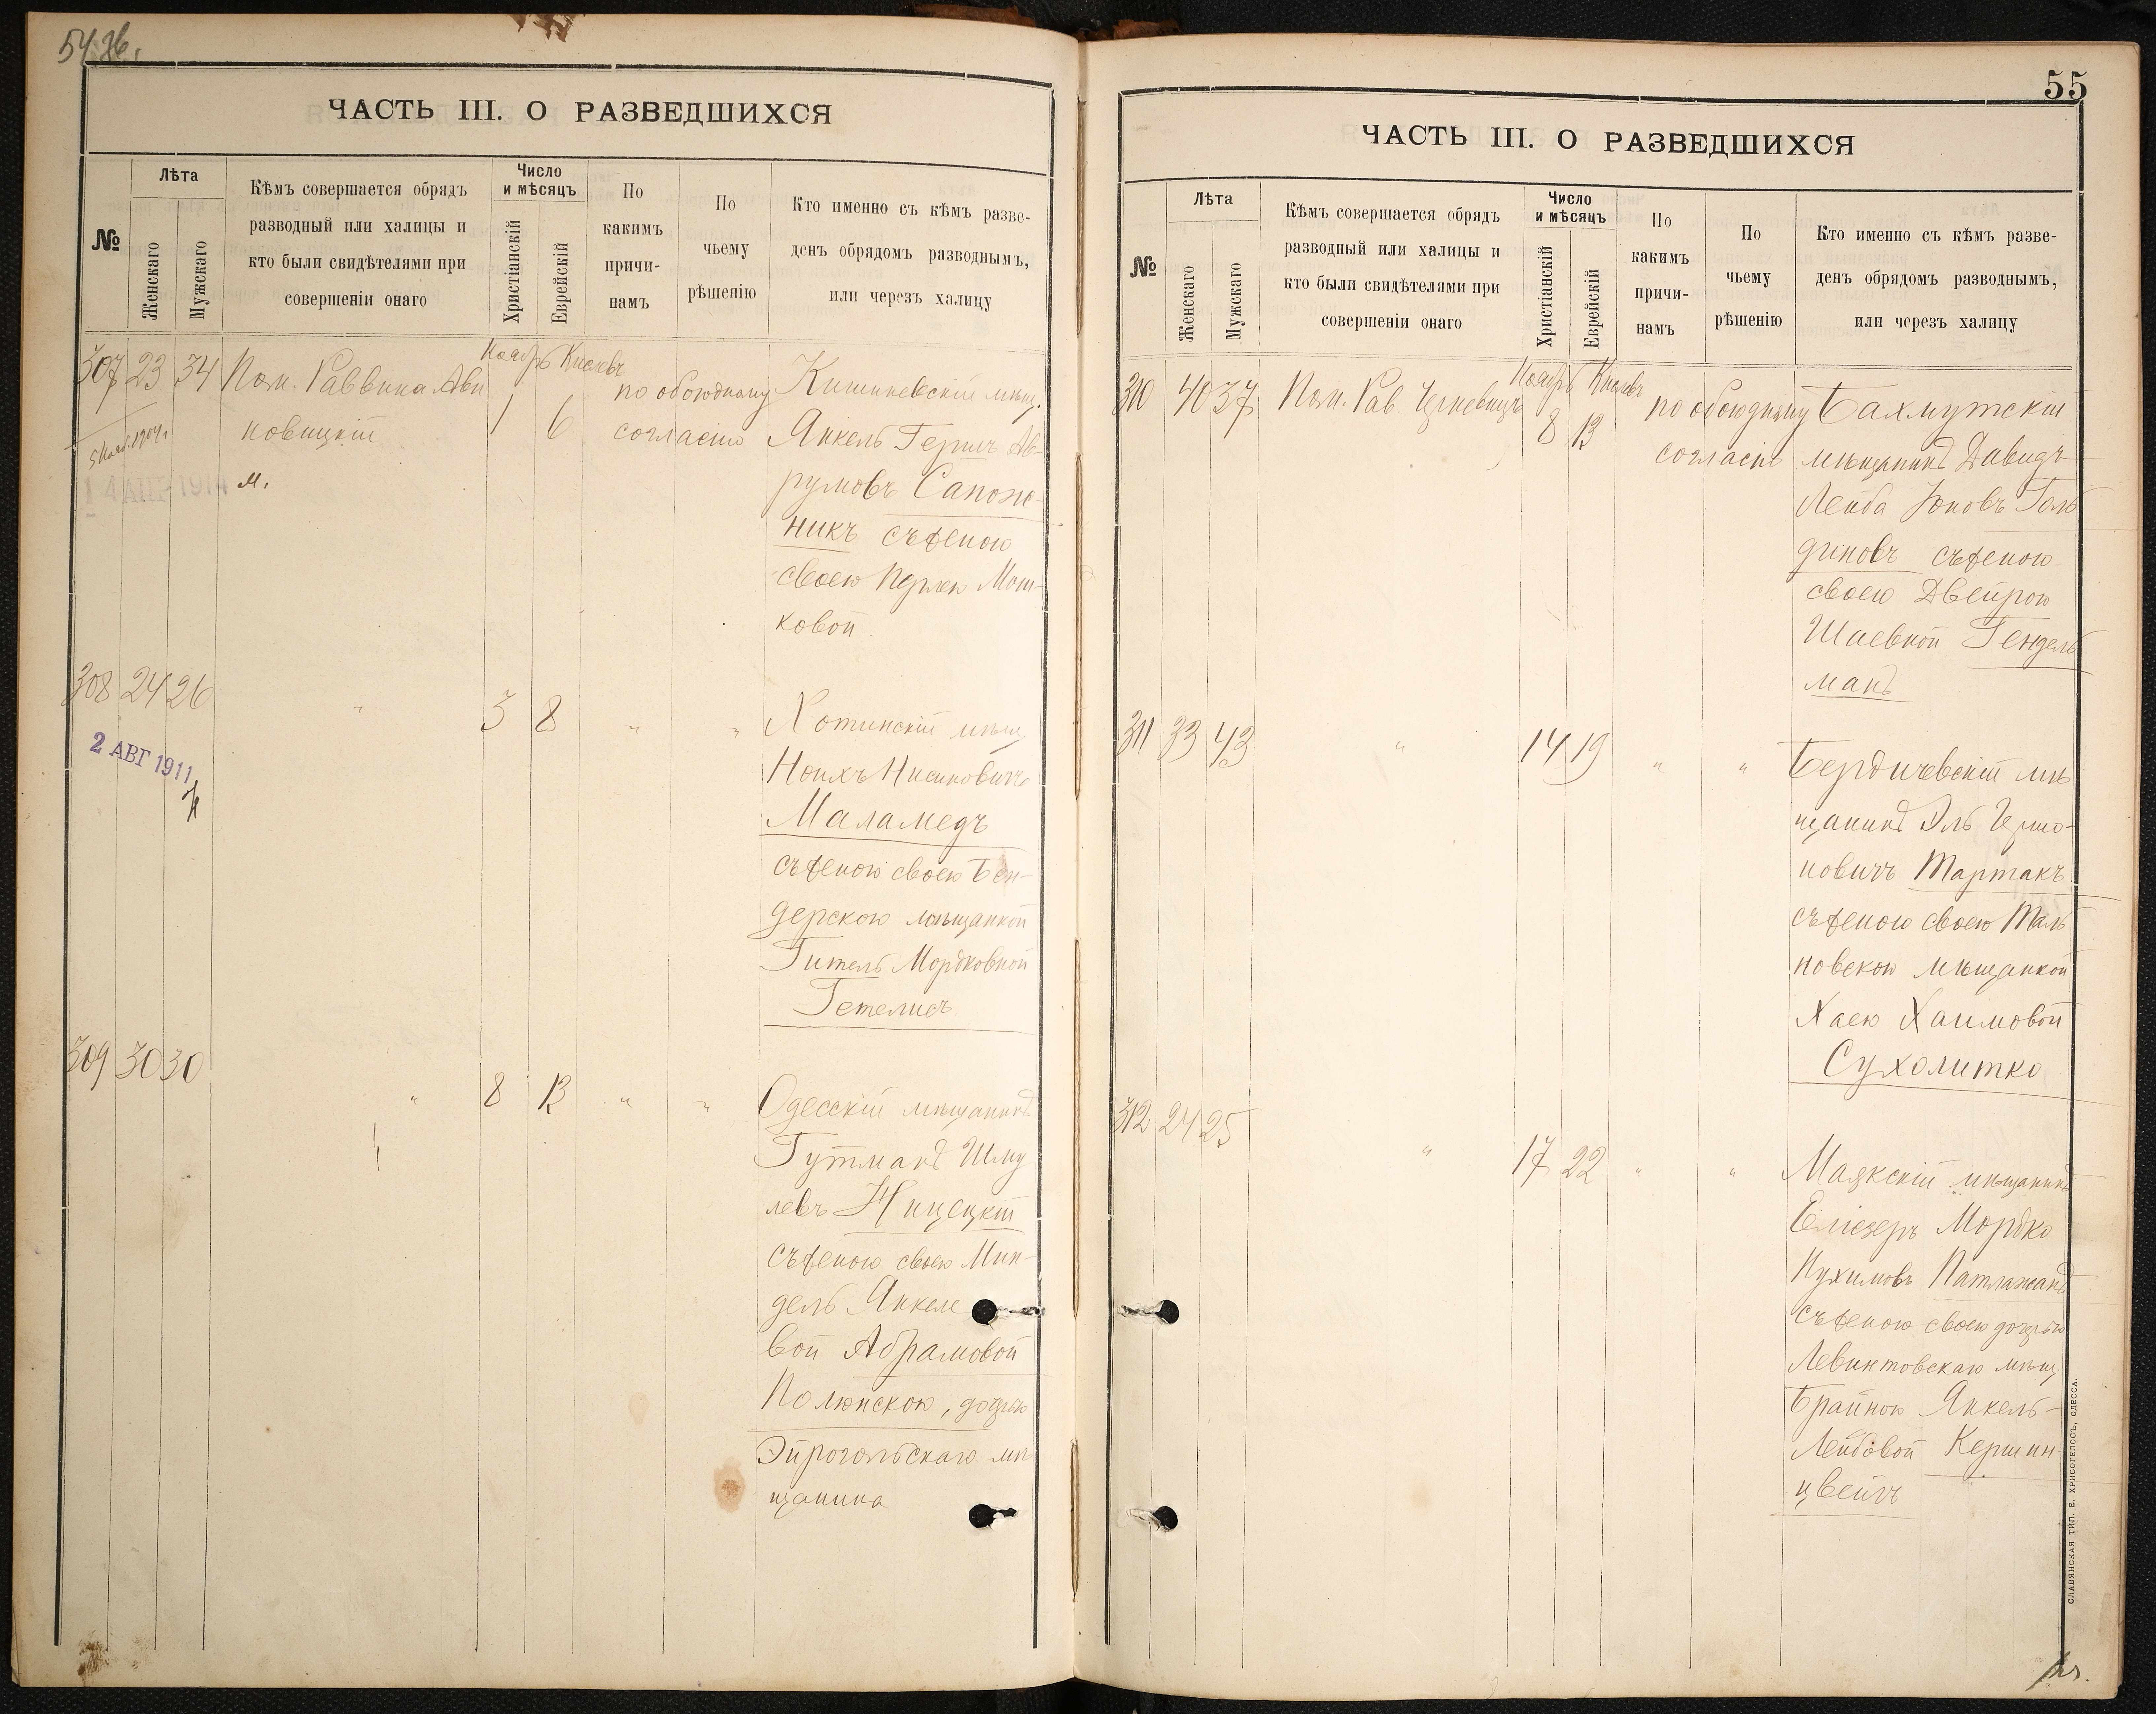 ЧАСТЬ III. О РАЗВЕДШИХСЯ
№
Лѣта
Женскаго
Мужскаго
Кѣмъ совершается обрядъ
разводный или халицы и
кто были свидѣтелями при
совершеніи онаго
Число
и мѣсяцъ
Христіанскій
Еврейскій
По
какимъ
причи-
намъ
По
чьему
рѣшенію
Кто именно съ кѣмъ разве-
денъ обрядомъ разводнымъ,
или черезъ халицу
Ноябрь Кислевъ
307 23 34 Пом. Раввина Ави
новицкій
м.
1 6
по обоюдному
согласію
Кишиневскій мѣщ.
Янкель Гершъ Ав-
румовъ Сапож-
никъ съ женою
своею Перлею Мош-
ковой
308 24 26 " 3 8 " "
2 АВГ 1911
Хотинскій мѣщ.
Ноихъ Нисиновичъ
Маламедъ
съ женою своею Бен-
дерскою мѣщанкой
Гитель Мордковной
Гетелисъ
309 30 30 " 8 13 " "
Одесскій мѣщанинъ
Гутманъ Шму
левъ Ницецкій
съ женою своею Мин-
дель Янкеле
вой Абрамовой
Полюнскою, дочерью
Эйрогольскаго мѣ
щанина
55
ЧАСТЬ III. О РАЗВЕДШИХСЯ
№
Лѣта
Женскаго
Мужскаго
Кѣмъ совершается обрядъ
разводный или халицы и
кто были свидѣтелями при
совершеніи онаго
Число
и мѣсяцъ
Христіанскій
Еврейскій
По
какимъ
причи-
намъ
По
чьему
рѣшенію
Кто именно съ кѣмъ разве-
денъ обрядомъ разводнымъ,
или черезъ халицу
Ноябрь Кислевъ
310 40 37 Пом. Рав.
8 13
по обоюдному
согласію
Бахмутскій
мѣщанинъ Давидъ
Лейба Юновъ Голь
диновъ съ женою
своею Двейрою
Шаевной Гендель
манъ
311 33 43 " 14 19 " "
Бердичевскій мѣ
щанинъ Эль Гершо-
новичъ Тартакъ
съ женою своею Таль
новскою мѣщанкой
Хаею Хаимовой
Сухолитко
312 24 25 " 17 22 " "
Маякскій мѣщанинъ
Еліезеръ Мордко
Нухимовъ Патлажанъ
съ женою своею дочерью
Левинтовскаго мѣщ.
Брайною Янкель-
Лейбовой Кершин
цвейгъ
СЛАВЯНСКАЯ ТИП. Е. ХРИСОГЕЛОСЪ, ОДЕССА.